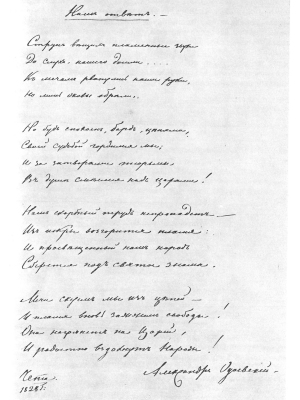 Нашъ отвѣтъ.—
Струнъ вѣщихъ пламенные звуки
До слуха нашего дошли....
Къ мечамъ рванулись наши руки,
Но лишь оковы обрѣли.
Но будь спокоенъ, бардъ, цѣпями,
Своей судьбой гордимся мы,
И за затворами тюрьмы
Въ душѣ смѣемся надъ царями!
Нашъ скорбный трудъ не пропадетъ—
Изъ искры возгорится пламя:
И просвѣщенный нашъ народъ
Сберется подъ святое знамя.
Мечи скуемъ мы изъ цѣпей—
И пламя вновь зажжемъ свободы!
Она нагрянетъ на Царей,
И радостно вздохнутъ Народы!
Александръ Одоевскій.—
Чита.
1828 г.